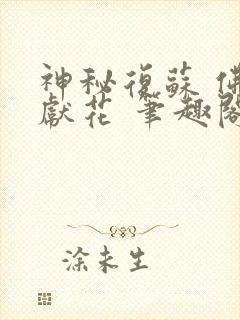 神秘復蘇 佛
獻花 筆趣閣
涂未生